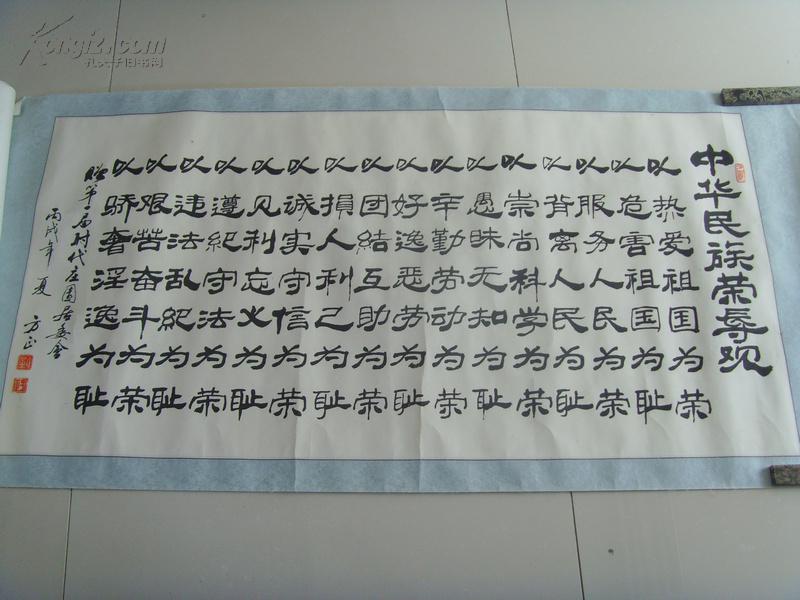 中华民族荣辱观
以热爱祖国为荣
以危害祖国为耻
以服务人民为荣
以背离人民为耻
以崇尚科学为荣
以愚昧无知为耻
以辛勤劳动为荣
以好逸恶劳为耻
以团結互助为荣
以損人利己为耻
以诚实守信为荣
以见利忘义为耻
以遵纪守法为荣
以违法乱纪为耻
以艰苦奋斗为荣
以骄奢淫逸为耻
赠第一届时代庄园居委会
丙戌年夏 方正
Kongfz.com
孔夫子旧书网